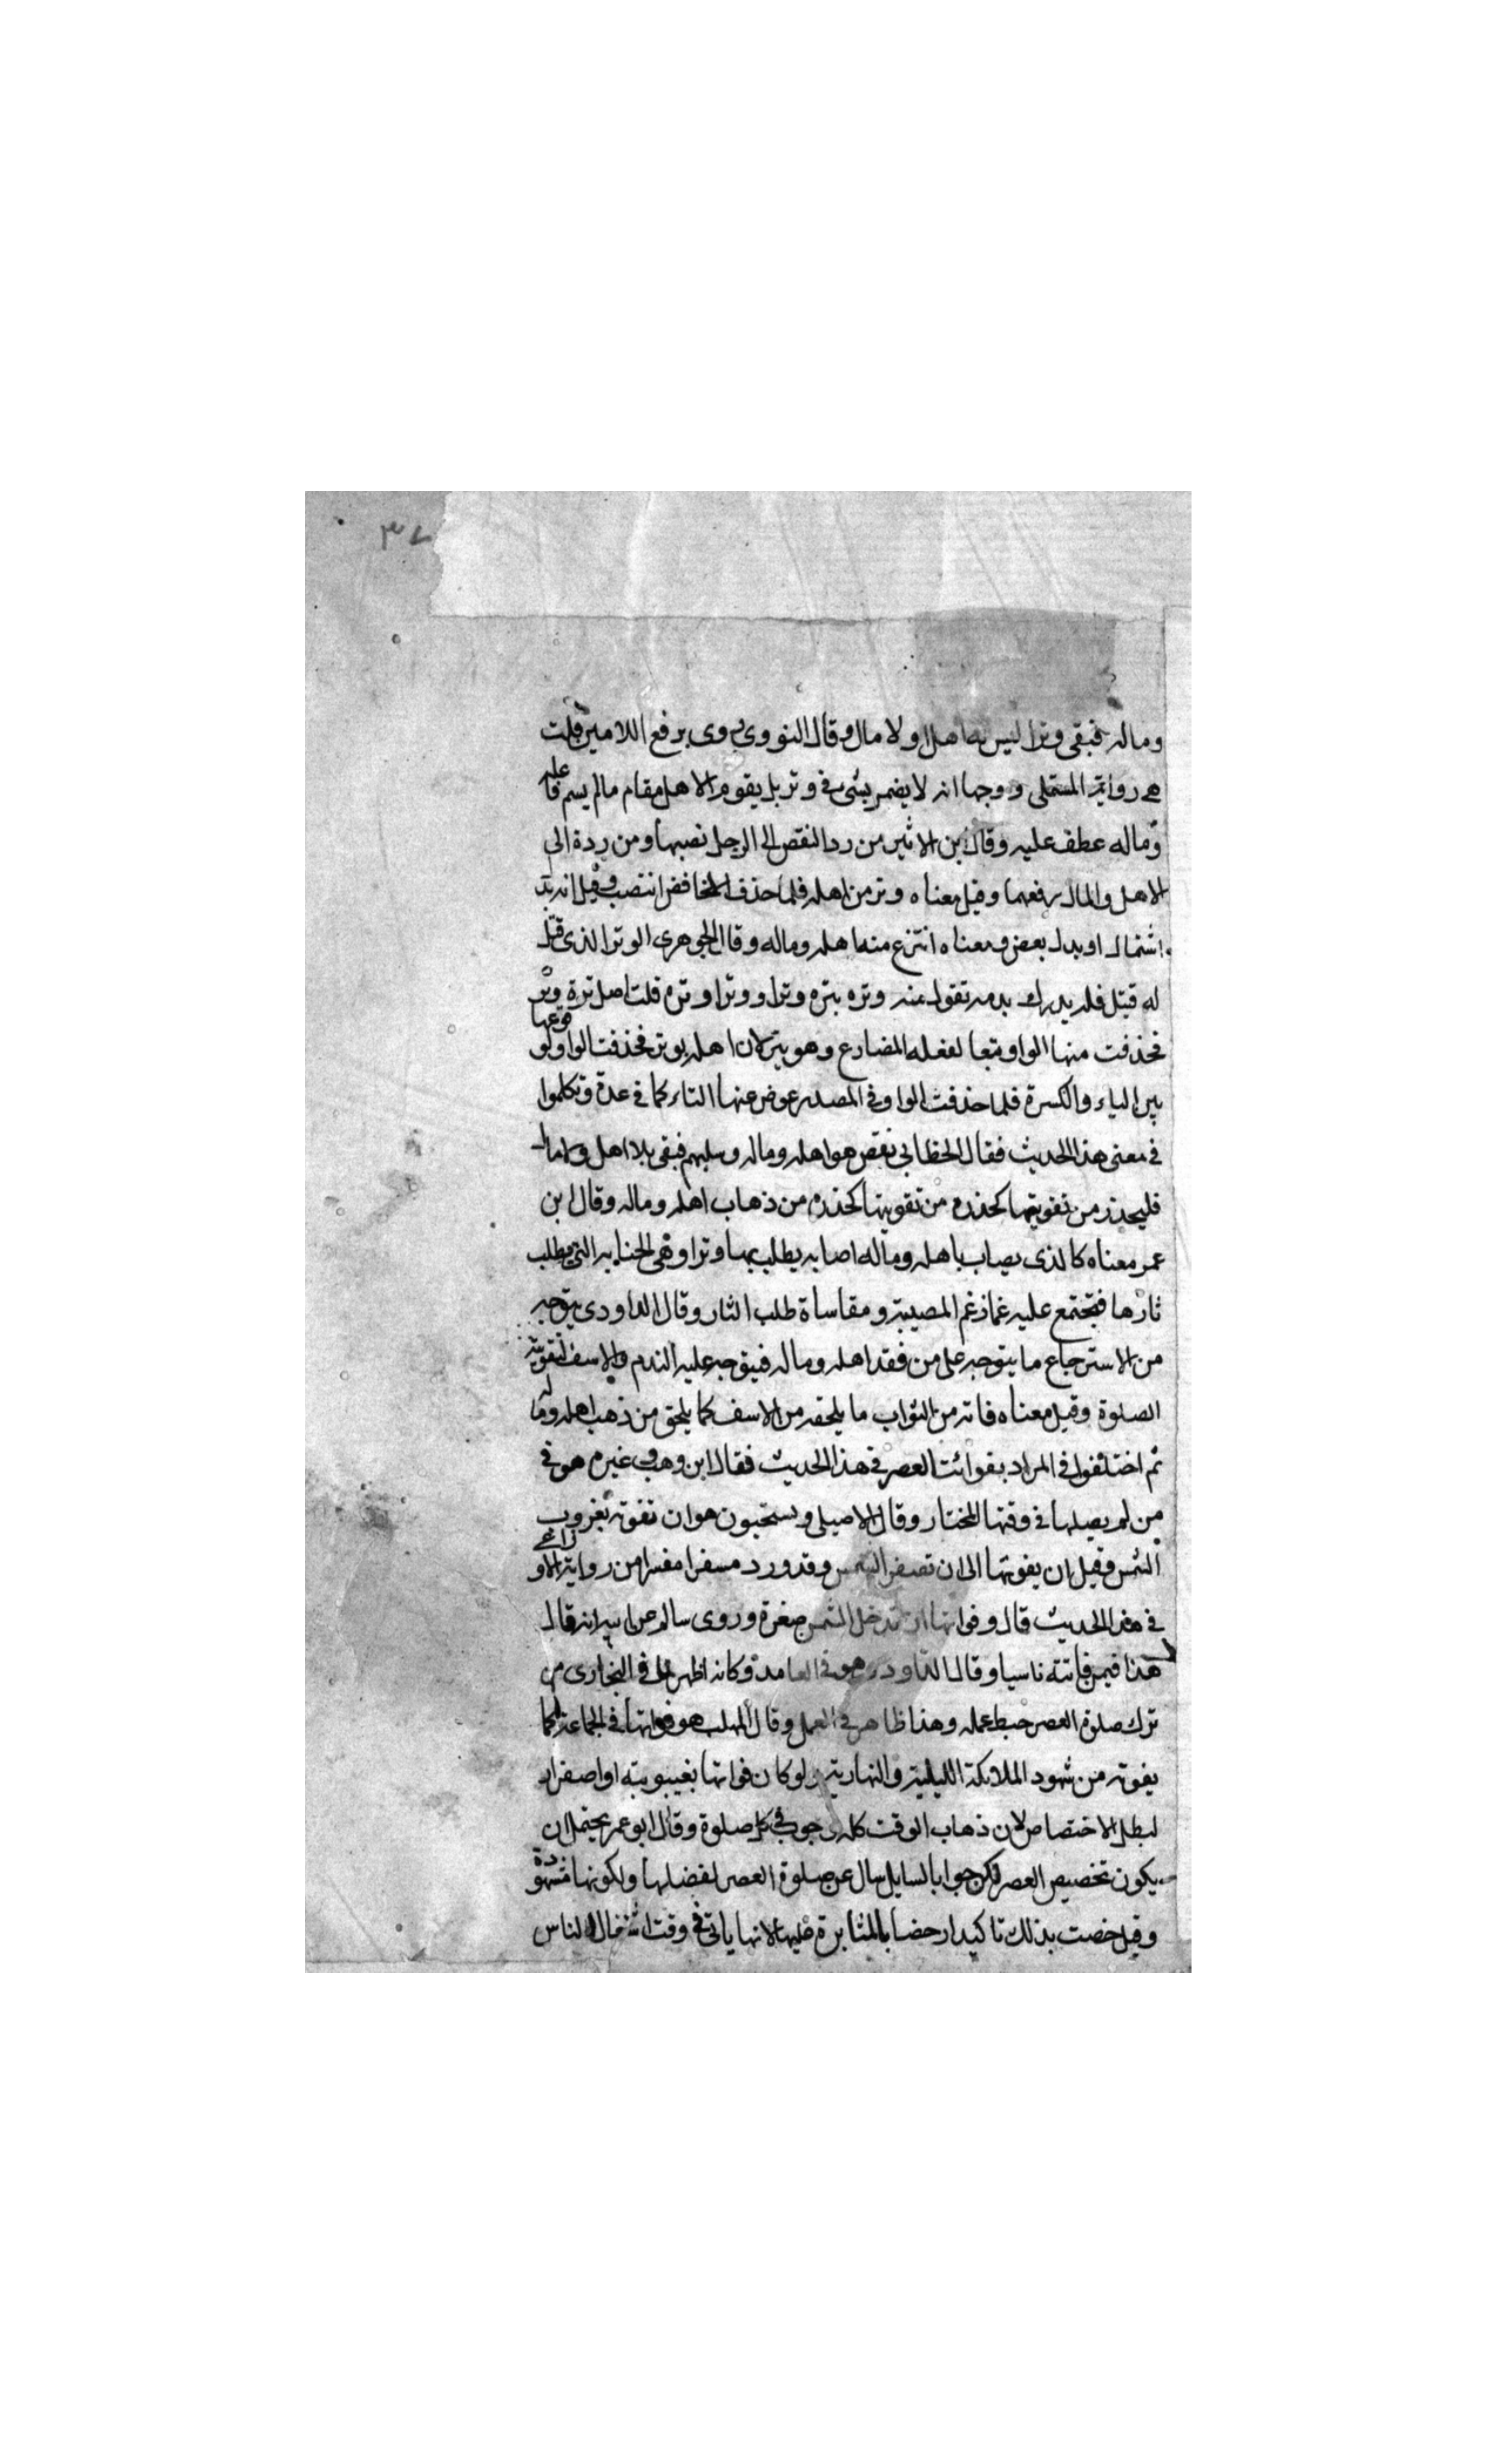 ٣٧
وماله فبقى وترا ليس له اهل ولا مال وقال النووى يروى برفع اللامين قلت
هى رواية المستملى ووجهها انه لا يضمر بشئ فى وتر بل يقوم الاهل مقام ما لم يسم فاعله
وماله عطف عليه وقال ابن الاثير من رد النقص الى الرجل نصبها ومن ردة الى
الاهل والمال رفعهما وقيل معناه وتر من اهله فلما حذف الخافض انتصب وقيل انه بدل
اشتمال او بدل بعض ومعناه انتزع منه اهله وماله وقال الجوهرى الوتر الذى قتل
له قتيل فلم يدرك بدمه تقول منه وتره يتره وترا ووترا وتره قلت اصل ترة وتر
فحذفت منها الواو تبعا لفعله المضارع وهو يتر لان اهله يوتر فحذفت الواو لوقوعها
بين الياء والكسرة فلما حذفت الواو فى المصدر عوض عنها التاء كما فى عدة وتكلموا
فى معنى هذا الحديث فقال الخطابى نقص هو اهله وماله وسلبهم فبقى بلا اهل ولا مال
فليحذر من تفويتها كحذره من تفويتها كحذره من ذهاب اهله وماله وقال ابن
عمر معناه كالذى يصاب باهله وماله اصابه يطلب بها وترا وهى الجنايه التى يطلب
ثارها فيجتمع عليه غمان غم المصيبة ومقاساة طلب الثار وقال الداودى يتوجه
من الاسترجاع ما يتوجه على من فقد اهله وماله فيتوجه عليه الندم والاسف لتفويته
الصلوة وقيل معناه فاته من الثواب ما يلحقه من الاسف كما يلحق من ذهب اهله وماله
ثم اختلفوا فى المراد بفوائت العصر فى هذا الحديث فقال ابن وهب وغيره هو فى
من لم يصلها فى وقتها المختار وقال الاصيلى وسحنون هو ان تفوته بغروب
الشمس وقيل ان يفوتها الى ان تصفر الشمس وقد ورد مسفرا مفسرا من رواية الاوزاعى
فى هذا الحديث قال وفواتها ان تدخل الشمس صفرة وروى سالم عن ابيه انه قال
هذا فيمن فاتته ناسيا وقال الداودى هو فى العامد وكانه اظهر لما فى البخارى من
ترك صلوة العصر حبط عمله وهذا ظاهر فى العمل وقال المهلب هو فواتها فى الجماعة لما
يفوته من شهود الملائكة الليلية والنهارية ولو كان فواتها بغيبوبته او اصفرار
لبطل الاختصاص لان ذهاب الوقت كله موجود فى كل صلوة وقال ابو عمر يحتمل ان
يكون تخصيص العصر لكن جوابا لسايل سال عن صلوة العصر لفضلها ولكونها مشهودة
وقيل خصت بذلك تاكيدا وحضا بالمثابرة عليها لانها ياتى فى وقت اشتغال الناس